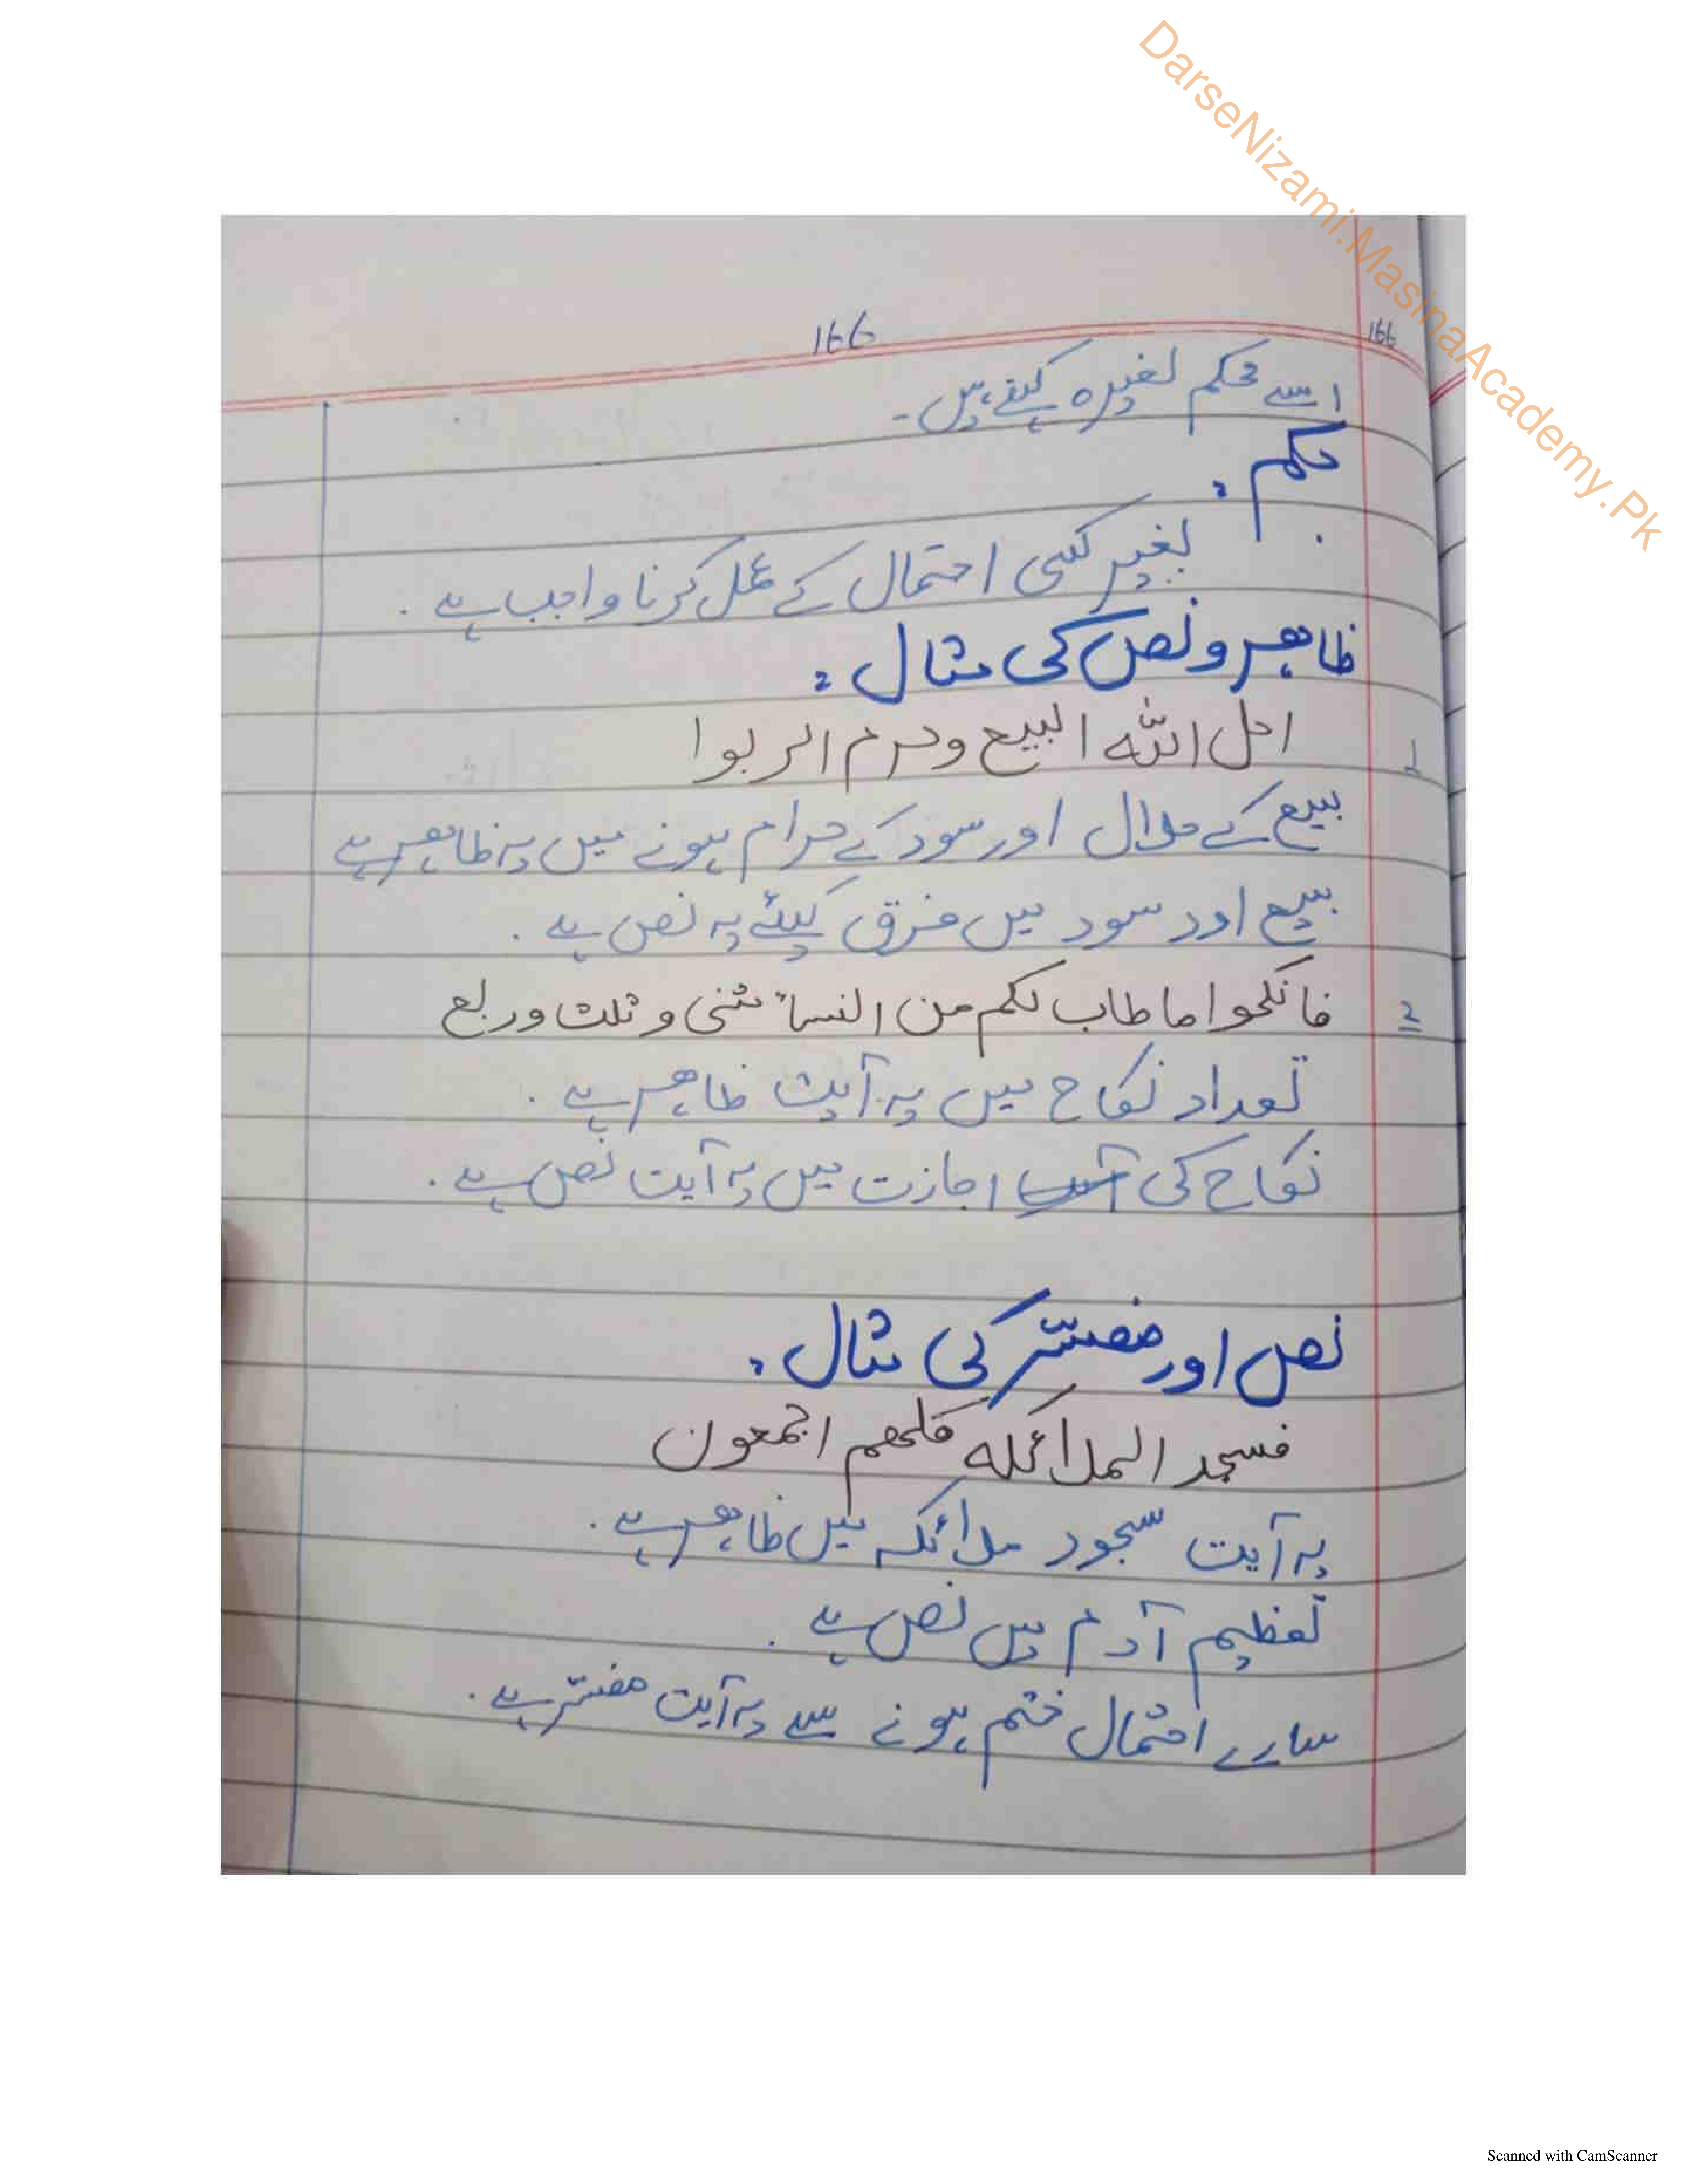 DarseNizami.MasinaAcademy.Pk
166
166
اسے محکم لغیرہ کہتے ہیں۔
حکم:
بغیر کسی احتمال کے عمل کرنا واجب ہے.
ظاہر و نص کی مثال:
1 احل اللہ البیع وحرم الربوا
بیع کے حلال اور سود کے حرام ہونے میں یہ ظاہر ہے
بیع اور سود میں فرق کیلئے یہ نص ہے.
2 فانکحوا ما طاب لکم من النساء مثنی و ثلث وربع
تعداد نکاح میں یہ آیت ظاہر ہے.
نکاح کی اجازت میں یہ آیت نص ہے.
نص اور مفسّر کی مثال:
فسجد الملائکہ کلھم اجمعون
یہ آیت سجود ملائکہ میں ظاہر ہے.
تعظیم آدم میں نص ہے.
سارے احتمال ختم ہونے سے یہ آیت مفسّر ہے.
Scanned with CamScanner